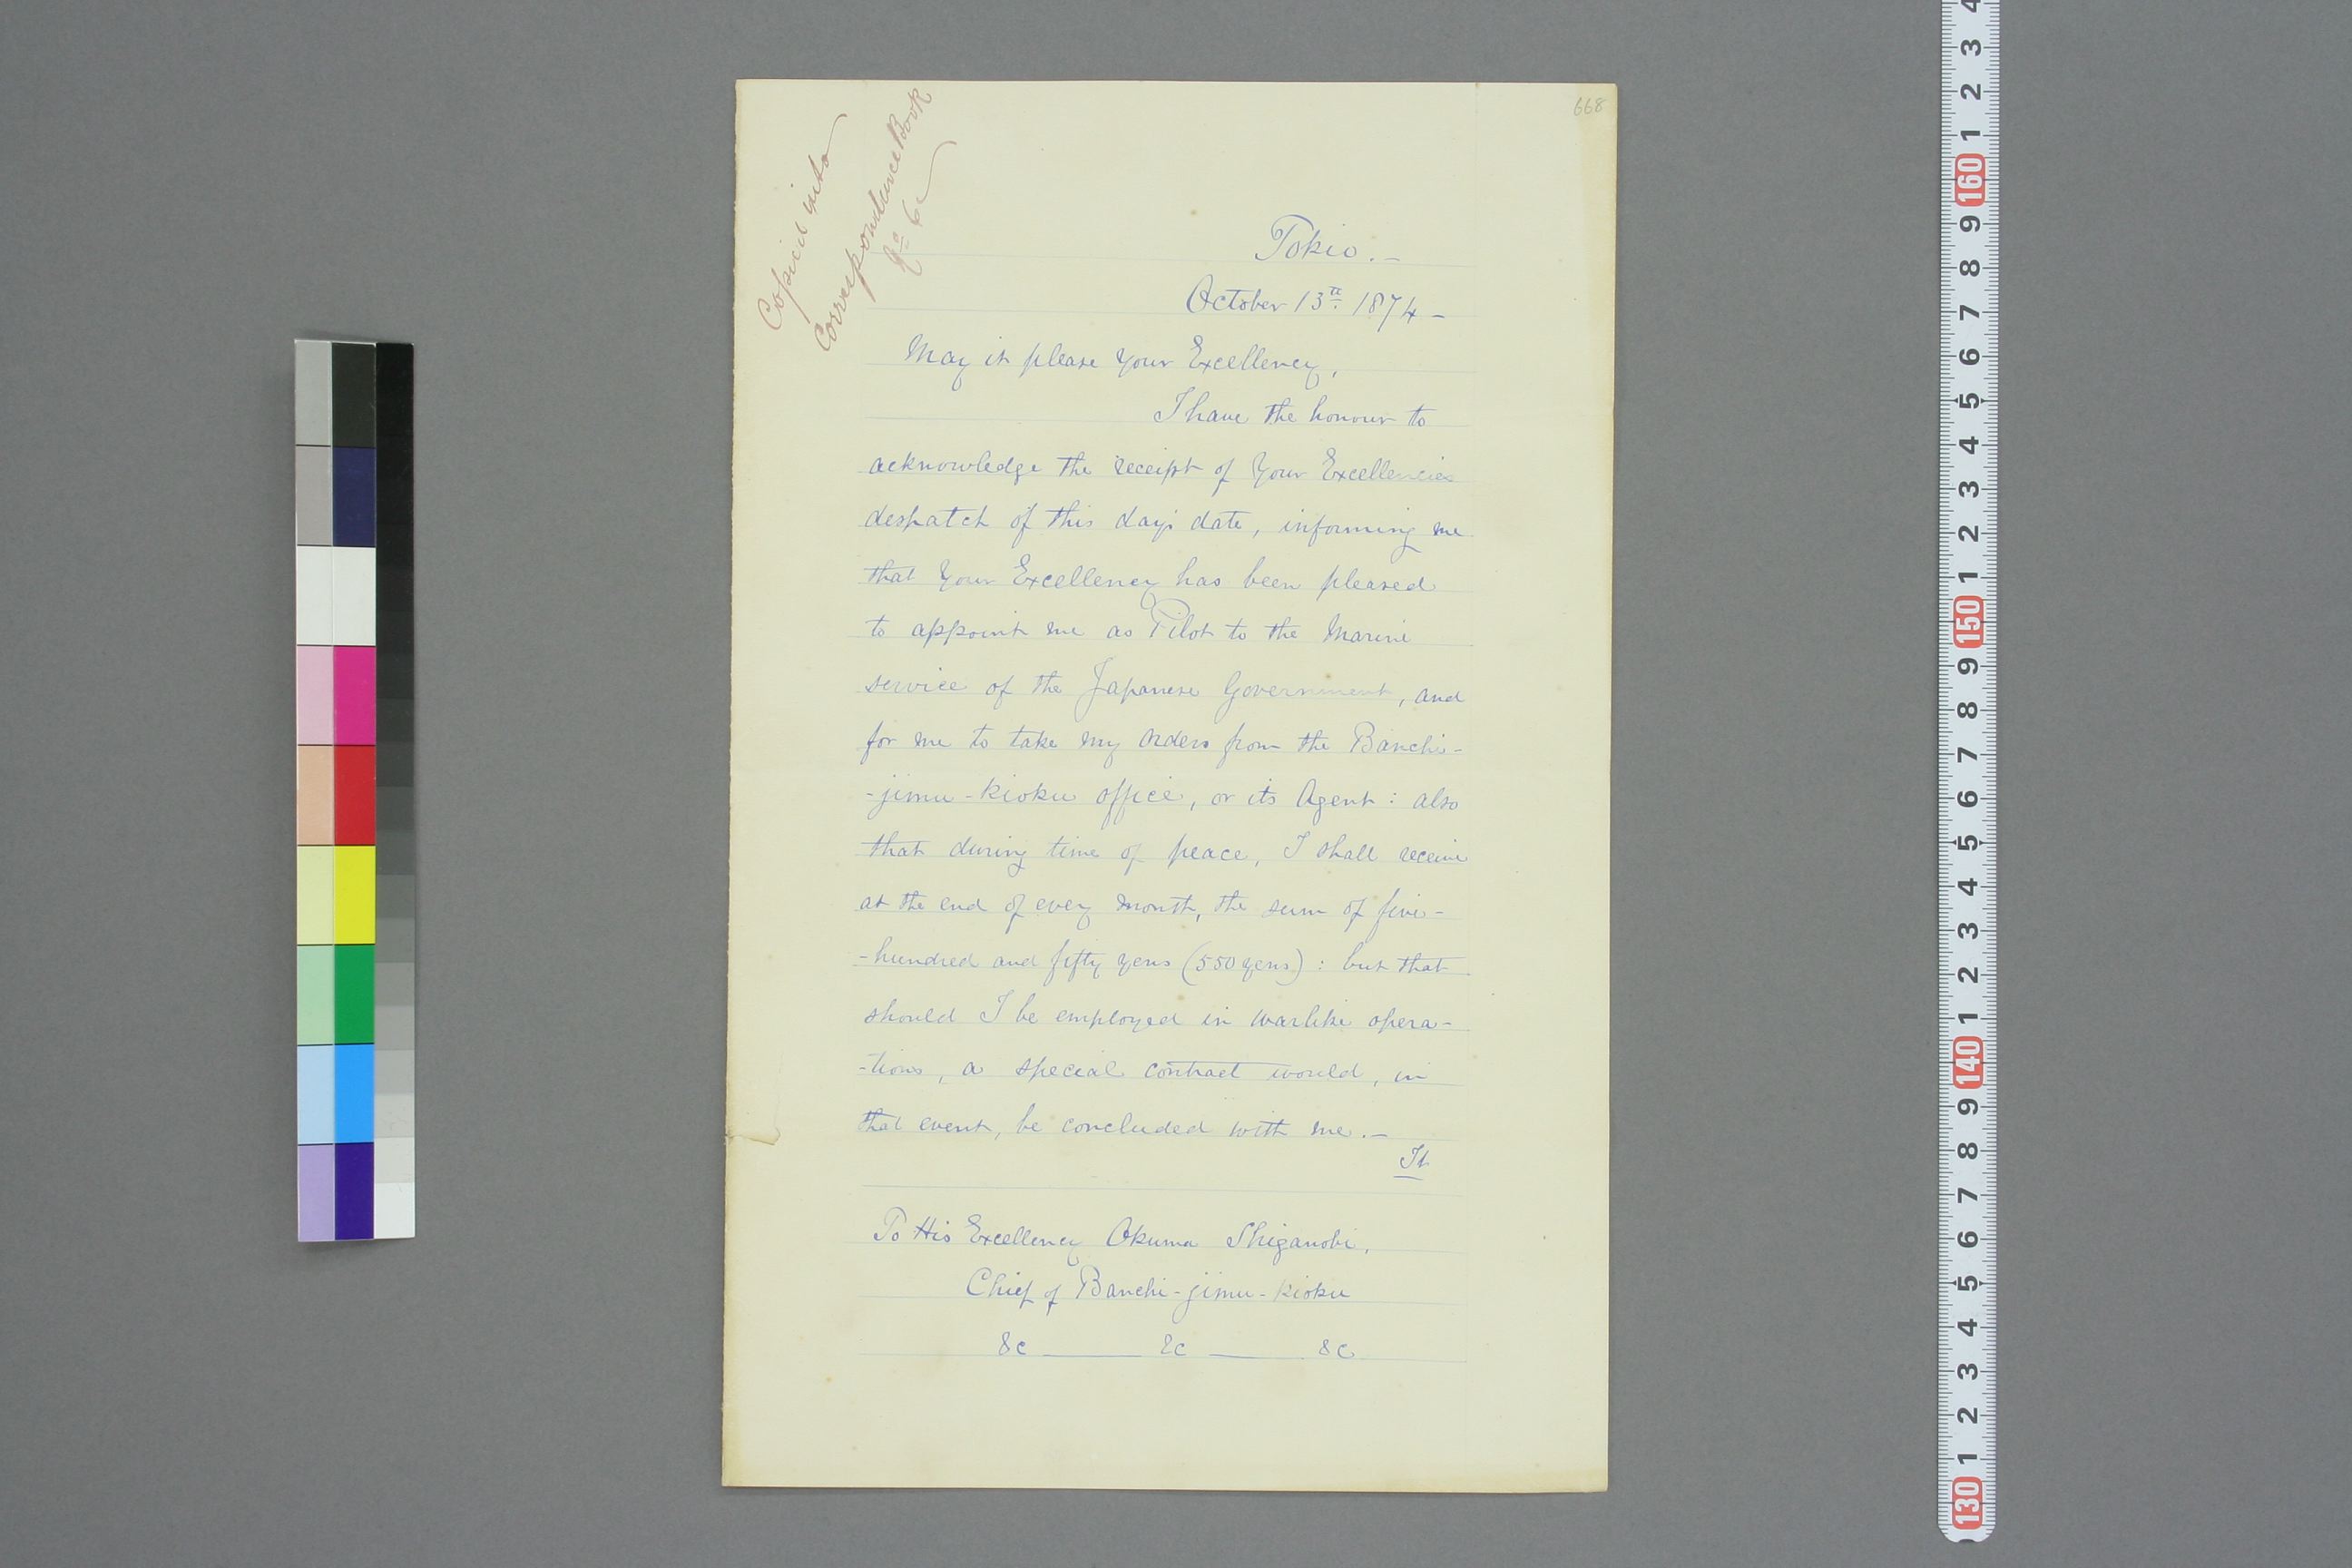 668
Copied into
Correspondence Book
No 6
Tokio.—
October 13th. 1874—
May it please Your Excellency,
I have the honour to
acknowledge the receipt of Your Excellencies
despatch of this day's date, informing me
that Your Excellency has been pleased
to appoint me as Pilot to the Marine
service of the Japanese Government, and
for me to take my orders from the Banchi-
-jimu-kioku office, or its Agent: also
that during time of peace, I shall receive
at the end of every month, the sum of five-
-hundred and fifty yens (550 yens): but that
should I be employed in warlike opera-
-tions, a special contract would, in
that event, be concluded with me.—
It
To His Excellency Okuma Shiganobi,
Chief of Banchi-jimu-kioku
&c ——— &c ——— &c
4
3
2
1
160
9
8
7
6
5
4
3
2
1
150
9
8
7
6
5
4
3
2
1
140
9
8
7
6
5
4
3
2
1
130